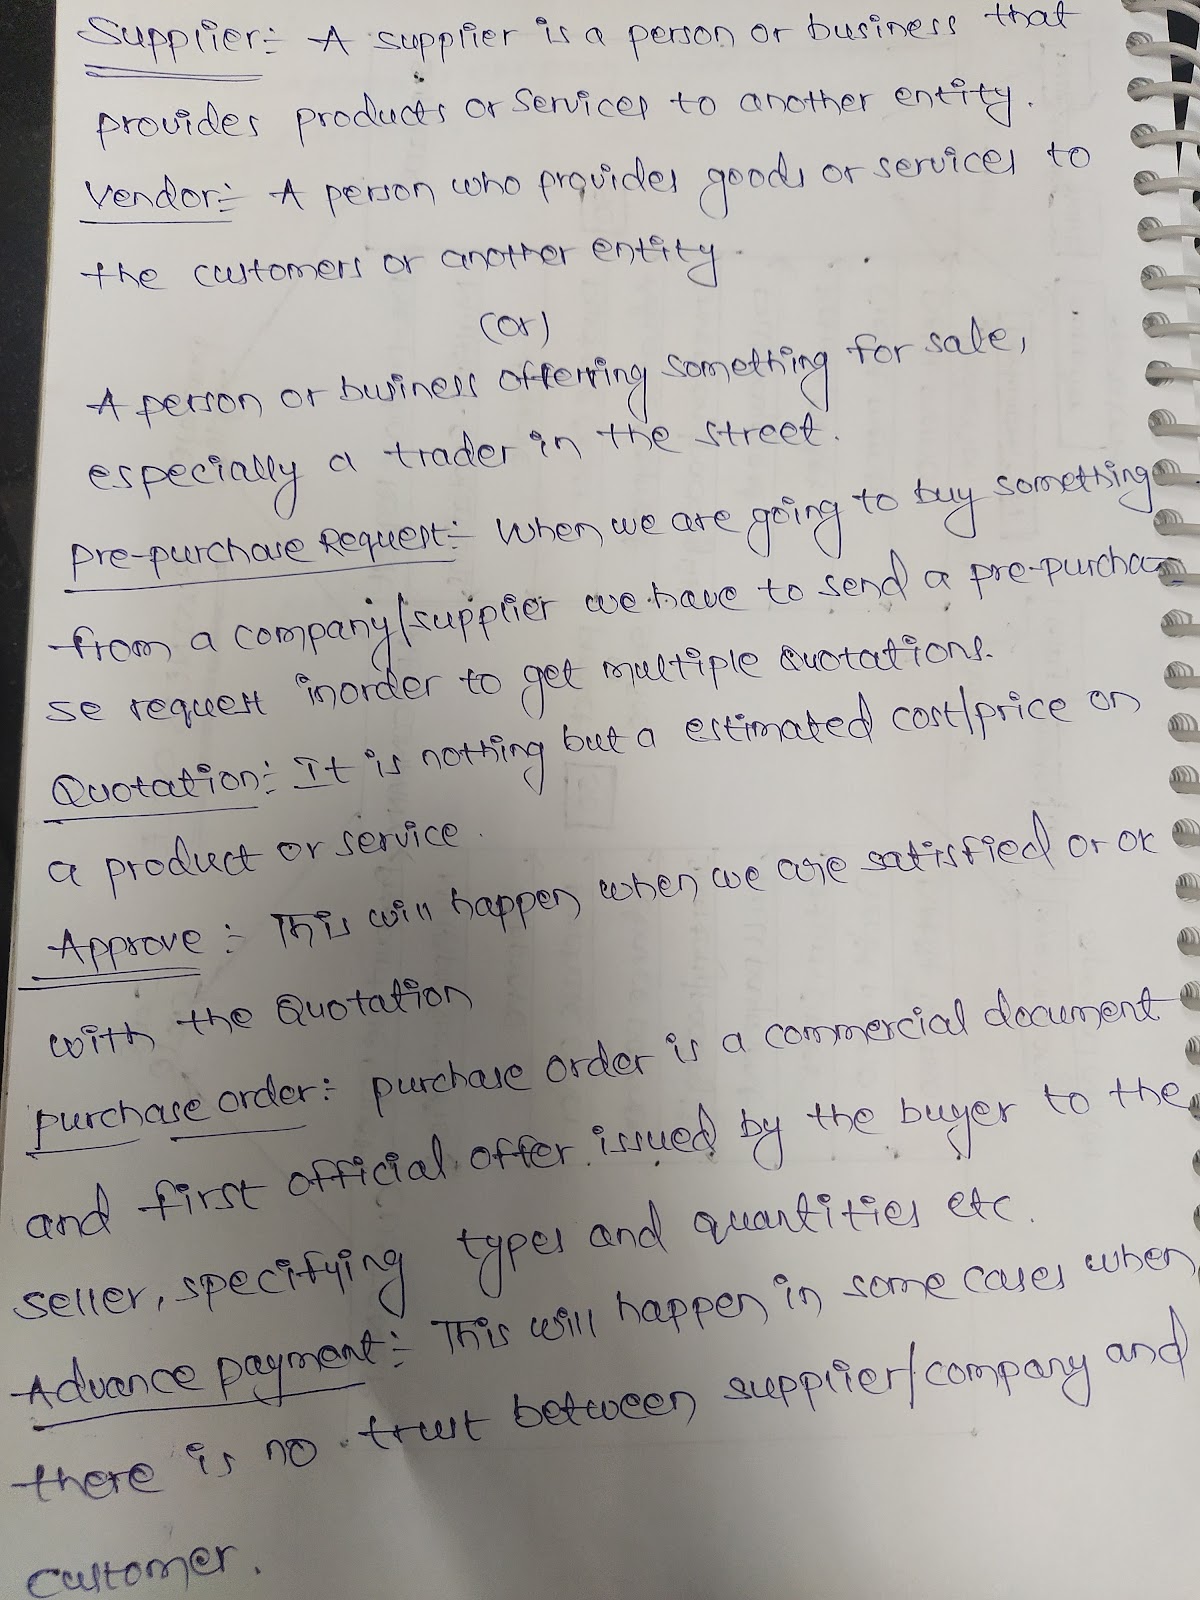 Supplier:- A supplier is a person or business that
provides products or services to another entity.
Vendor:- A person who provides goods or services to
the customers or another entity.
(or)
A person or business offerring something for sale,
especially a trader in the street.
Pre-purchase Request:- When we are going to buy something
from a company/supplier we have to send a pre-purcha-
se request inorder to get multiple Quotations.
Quotation:- It is nothing but a estimated cost/price on
a product or service.
Approve :- This will happen when we are satisfied or ok
with the Quotation
purchase order:- purchase order is a commercial document
and first official offer issued by the buyer to the
seller, specifying types and quantities etc.
Advance payment:- This will happen in some cases when
there is no trust between supplier/company and
customer.